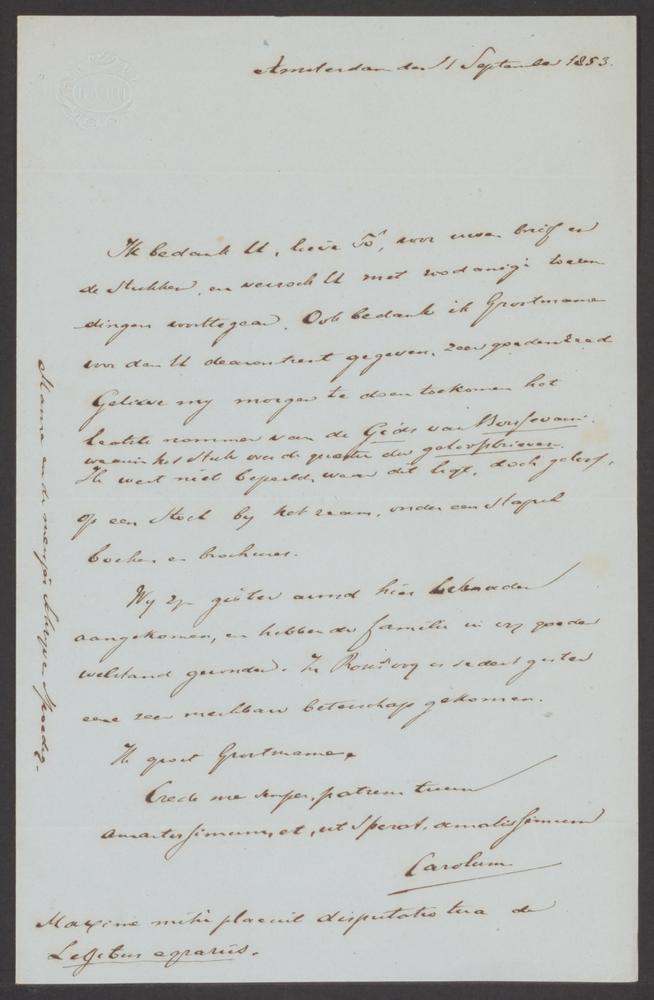 Amsterdam den 1 September 1853.
Ik bedank U, lieve Tó, voor uwen brief en
de stukken, en verzoek U met zodanige toezen
dingen voorttegaan. Ook bedank ik Grootmama
voor den U dienomtrent gegeven, zeer goeden raad
Gelieve my morgen te doen toekomen het
laatste nommer van de Gids van
waarin het stuk over de quaestie der geloofsbrieven.
Ik weet niet bepaald, waar dit ligt, doch geloof,
op een stoel by het raam, onder een stapel
boeken en brochures.
Wy zyn gister avond hier behouden
aangekomen, en hebben de familie in vry goeden
welstand gevonden. In is sedert gister
eene zeer merkbare beterschap gekomen.
Ik groet Grootmama.
Crede me semper, patrem tuum
amantissimum, et, ut sperat, amatissimum
Carolum
Maxime mihi placuit disputatio tua de
Legibus agrariis.
Mama en de meisjes spoedig.